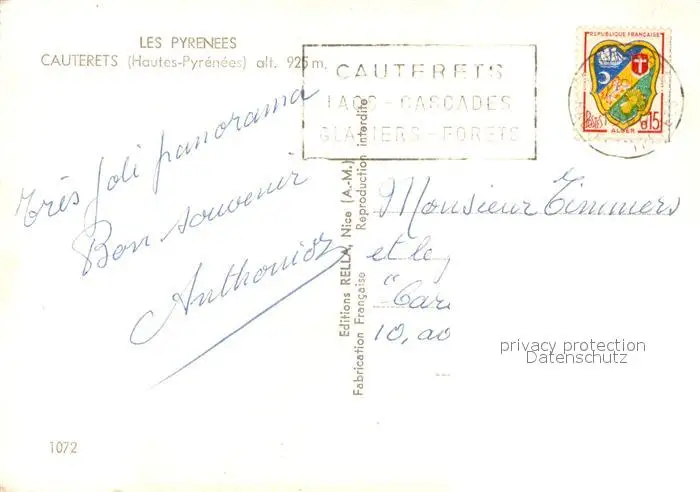 LES PYRENEES
CAUTERETS (Hautes-Pyrénées) alt. 925 m.
CAUTERETS
LACS - CASCADES
GLACIERS - FORETS
REPUBLIQUE FRANÇAISE
POSTES 0,15
ALGER
Très joli panorama
Bon souvenir
Anthonioz
Editions RELLA, Nice (A.-M.)
Fabrication Française Reproduction interdite
Monsieur Timmers
et le
"Car
10, ao
privacy protection
Datenschutz
1072